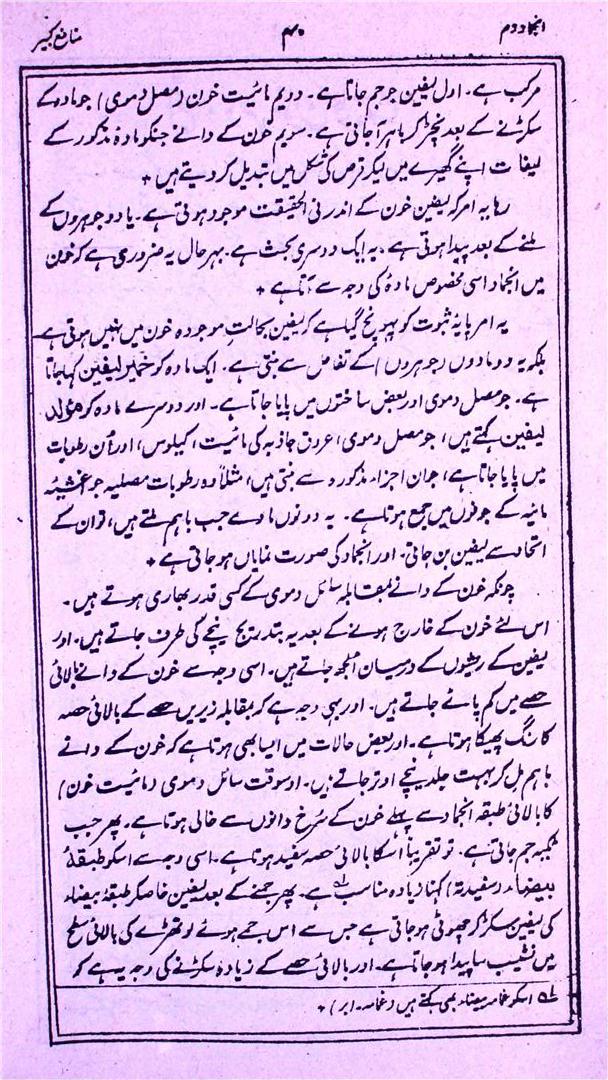 انجماد دم ۴۰ منافع کبیر
مرکب ہے۔ اول لیفین جو جم جاتا ہے۔ دویم مائیت خون (مصل دموی) جو مادہ کے
سکڑنے کے بعد نچڑ کر باہر آ جاتی ہے۔ سویم خون کے دانے جنکو مادۂ مذکور کے
لیفات اپنے گھیرے میں لیکر قرص کی شکل میں تبدیل کر دیتے ہیں +
رہا یہ امر کہ لیفین خون کے اندر فی الحقیقت موجود ہوتی ہے۔ یا دو جوہروں کے
ملنے کے بعد پیدا ہوتی ہے، یہ ایک دوسری بحث ہے۔ بہر حال یہ ضروری ہے کہ خون
میں انجماد اسی مخصوص مادۂ کی وجہ سے آتا ہے +
یہ امر پایۂ ثبوت کو پہونچ گیا ہے کہ لیفین بحالت موجودہ خون میں نہیں ہوتی ہے
بلکہ یہ دو مادوں (جوہروں) کے تفاعل سے بنتی ہے۔ ایک مادہ کو خمیر لیفین کہا جاتا
ہے۔ جو مصل دموی اور بعض ساختوں میں پایا جاتا ہے۔ اور دوسرے مادہ کو مولد
لیفین کہتے ہیں، جو مصل دموی، عروق جاذبہ کی مائیت، کیلوس، اور اُن رطوبات
میں پایا جاتا ہے، جو ان اجزاء مذکورہ سے بنتی ہیں، مثلاً وہ رطوبات مصلیہ جو اغشیۂ
مائیہ کے جوفوں میں جمع ہوتا ہے۔ یہ دونوں مادے جب باہم ملتے ہیں، تو ان کے
اتحاد سے لیفین بن جاتی۔ اور انجماد کی صورت نمایاں ہو جاتی ہے +
چونکہ خون کے دانے بمقابلہ سائل دموی کے کسی قدر بھاری ہوتے ہیں۔
اس لئے خون کے خارج ہونے کے بعد یہ بتدریج نیچے کی طرف جاتے ہیں۔ اور
لیفین کے ریشوں کے درمیان اُلجھ جاتے ہیں۔ اسی وجہ سے خون کے دانے بالائی
حصے میں کم پائے جاتے ہیں۔ اور یہی وجہ ہے کہ بمقابلہ زیریں حصے کے بالائی حصہ
کا رنگ پھیکا ہوتا ہے۔ اور بعض حالات میں ایسا بھی ہوتا ہے کہ خون کے دانے
باہم مل کر بہت جلد نیچے اوتر جاتے ہیں۔ اوسوقت سائل دموی (مائیت خون)
کا بالائی طبقہ انجماد سے پہلے خون کے سُرخ دانوں سے خالی ہوتا ہے۔ پھر جب
یہ جم جاتی ہے۔ تو تقریباً اُسکا بالائی حصہ سفید ہوتا ہے۔ اسی وجہ سے اسکو طبقۂ
بیضاء (سفید تہ) کہنا زیادہ مناسب ہے۔ پھر جمنے کے بعد لیفین خاصکر طبقۂ بیضاء
کی لیفین سکڑ کر چھوٹی ہو جاتی ہے جس سے اس جمے ہوئے لوتھڑے کی بالائی سطح
میں نشیب سا پیدا ہو جاتا ہے۔ اور بالائی حصے کے زیادہ سکڑنے کی وجہ یہ ہے کہ
لہ اسکو غمامہ بیضاء بھی کہتے ہیں (غمامہ۔ ابر) +